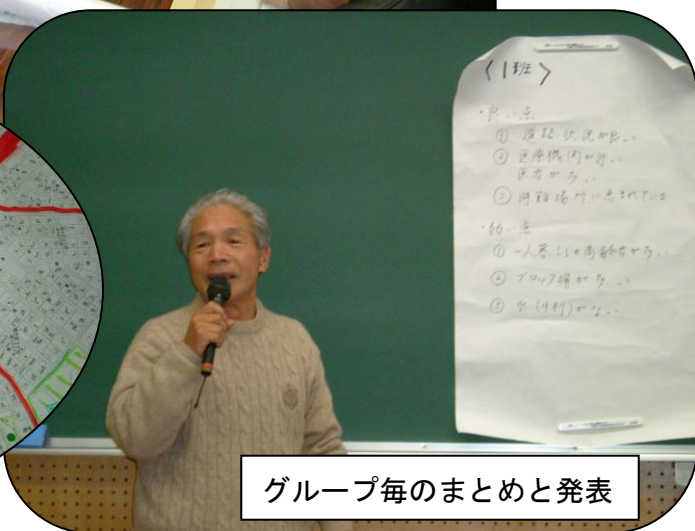 〈1班〉
・良い点
① 道路状況が良い
② 医療機関が近い
医者が多い
③ 避難場所に恵まれている
・弱い点
① 一人暮らしの高齢者が多い
② ブロック塀が多い
③ 水(水利)がない
グループ毎のまとめと発表